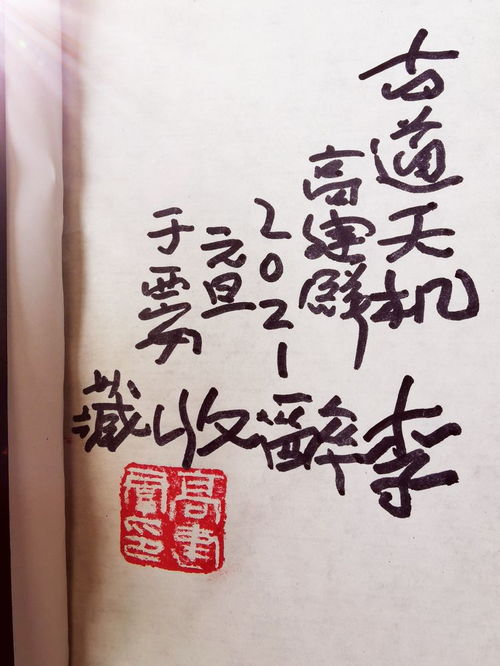 古道天机
高建群
2021
元旦
于西安
李醉收藏
高建群印